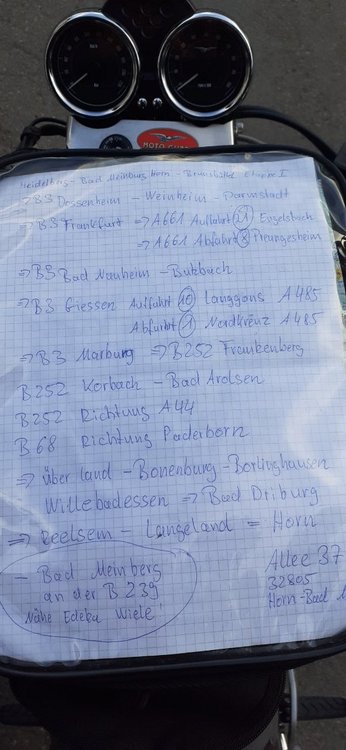 MOTO GUZZI
Heidelberg - Bad Meinburg Horn - Etappe I
⇒ B3 Dossenheim - Weinheim - Darmstadt
⇒ B3 Frankfurt ⇒ A661 Auffahrt 21 Engelsbach
⇒ A661 Abfahrt 8 Preungesheim
⇒ B3 Bad Nauheim - Butzbach
⇒ B3 Giessen Auffahrt 10 Langgöns A485
Abfahrt 1 Nordkreuz A485
⇒ B3 Marburg ⇒ B252 Frankenberg
B252 Korbach - Bad Arolsen
B252 Richtung A44
B68 Richtung Paderborn
⇒ über land - Bonenburg - Borlinghausen
Willebadessen ⇒ Bad Driburg
⇒ Reelsem - Langeland = Horn
- Bad Meinberg
an der B 239
Nähe Edeka Wiele!
Allee 37
32805
Horn-Bad